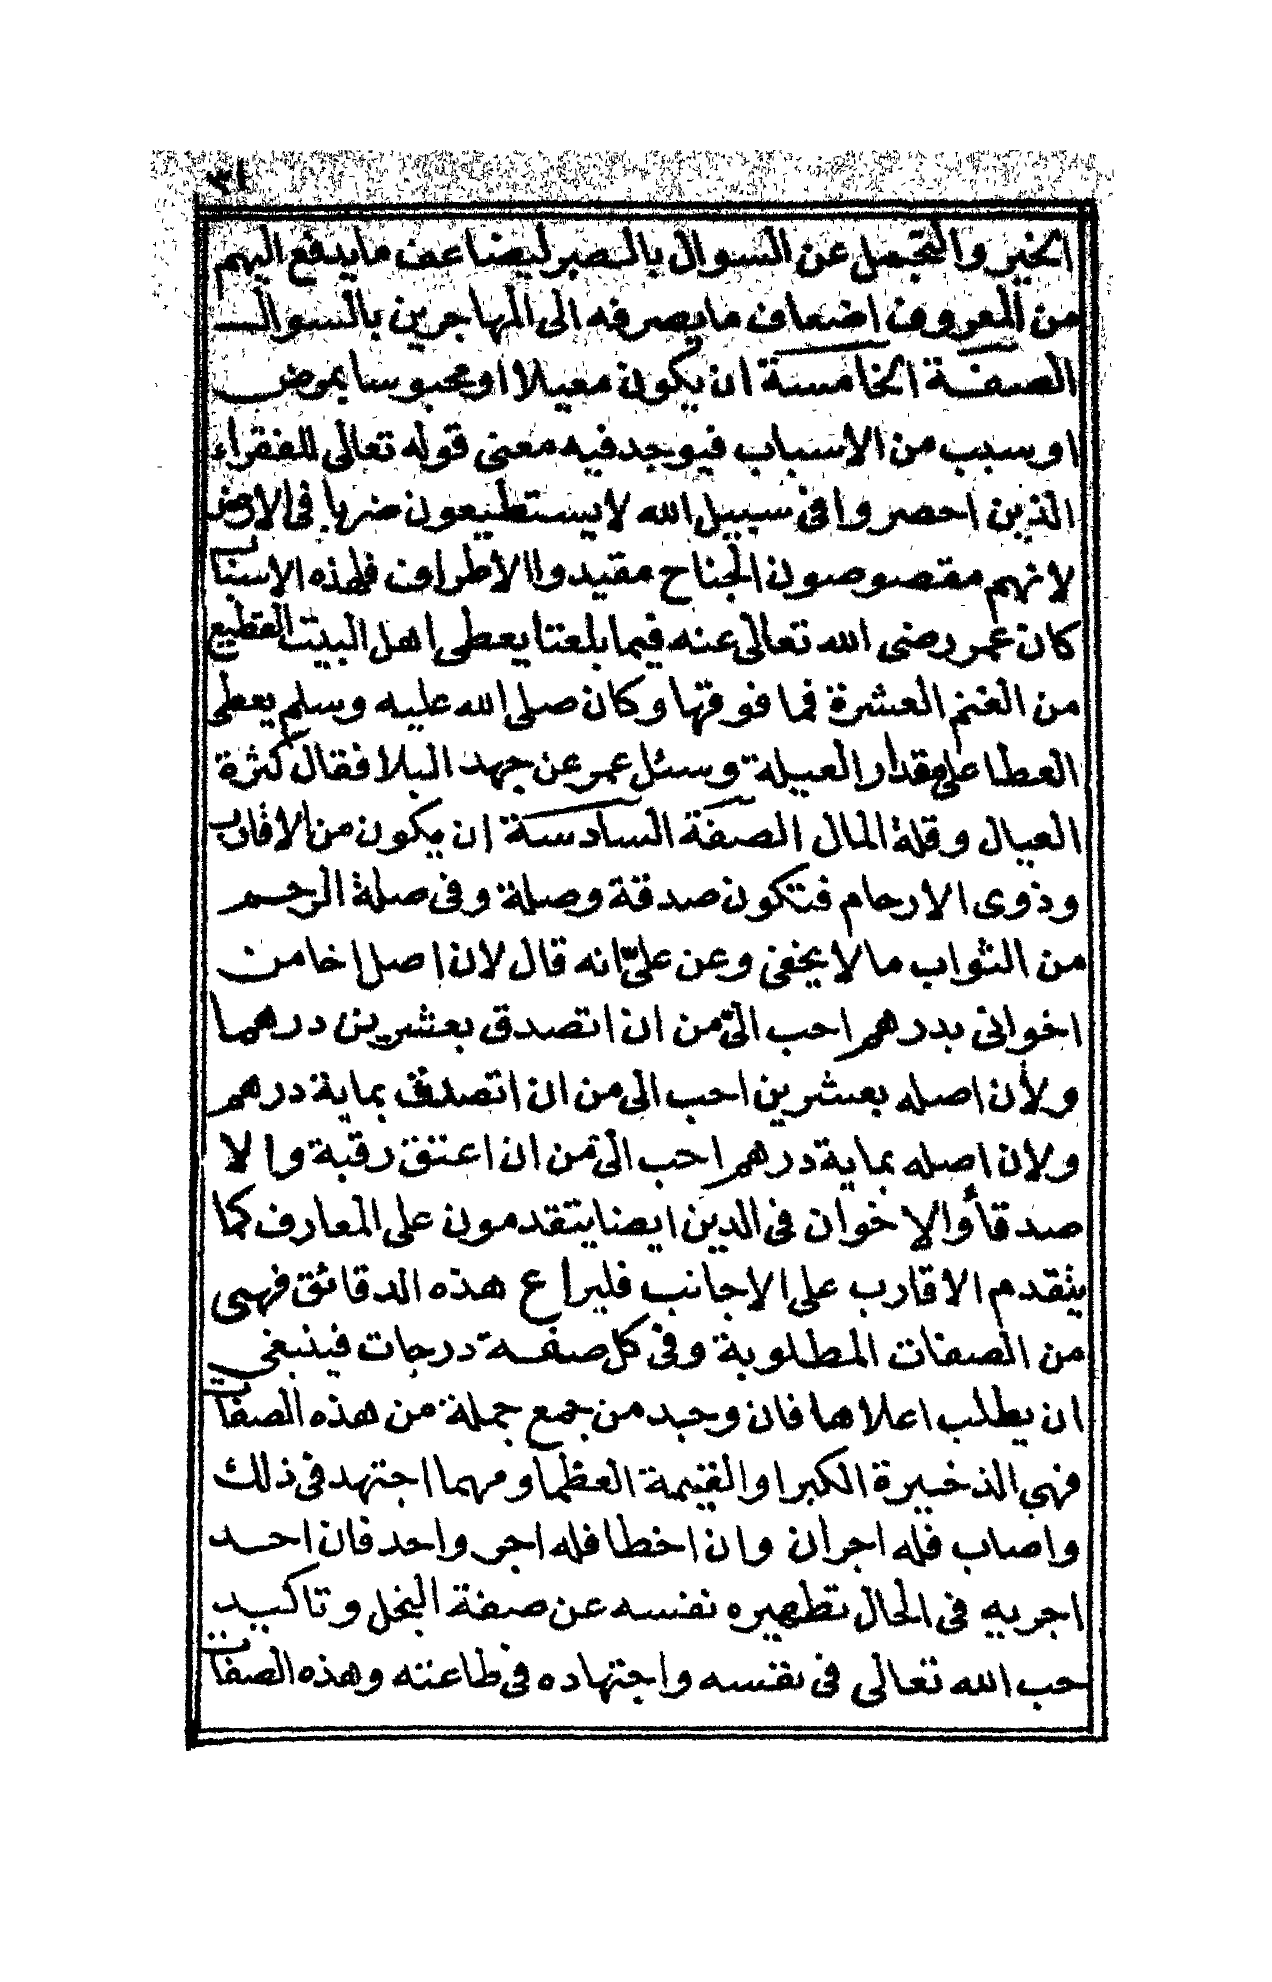 ٣١
الخير والتجمل عن السوال بالصبر ليضاعف ما يدفع اليهم
من المعروف اضعاف ما يصرفه الى المهاجرين بالسوال
الصفة الخامسة ان يكون معيلا او محبوسا بمرض
او سبب من الاسباب فيوجد فيه معنى قوله تعالى للفقراء
الذين احصروا فى سبيل الله لا يستطيعون ضربا فى الارض
لانهم مقصوصون الجناح مقيدوا الاطراف فلهذه الاسباب
كان عمر رضى الله تعالى عنه فيما بلغنا يعطى اهل البيت القطيع
من الغنم العشرة فما فوقها وكان صلى الله عليه وسلم يعطى
العطا على مقدار العيلة وسئل عمر عن جهد البلا فقال كثرة
العيال وقلة المال الصفة السادسة ان يكون من الاقارب
وذوى الارحام فتكون صدقة وصلة وفى صلة الرحم
من الثواب ما لا يخفى وعن علىّ انه قال لان اصل اخا من
اخوانى بدرهم احب الىّ من ان اتصدق بعشرين درهما
ولأن اصله بعشرين احب الى من ان اتصدق بماية درهم
ولان اصله بماية درهم احب الىّ من ان اعتق رقبة والا
صدقأ والاخوان فى الدين ايضا يتقدمون على المعارف كما
يتقدم الاقارب على الاجانب فليراع هذه الدقائق فهى
من الصفات المطلوبة وفى كل صفة درجات فينبغى
ان يطلب اعلاها فان وجد من جمع جملة من هذه الصفات
فهى الذخيرة الكبرا والغنيمة العظما ومهما اجتهد فى ذلك
واصاب فله اجران وان اخطا فله اجر واحد فان احد
اجريه فى الحال تطهيره نفسه عن صفة البخل وتاكيد
حب الله تعالى فى نفسه واجتهاده فى طاعته وهذه الصفات